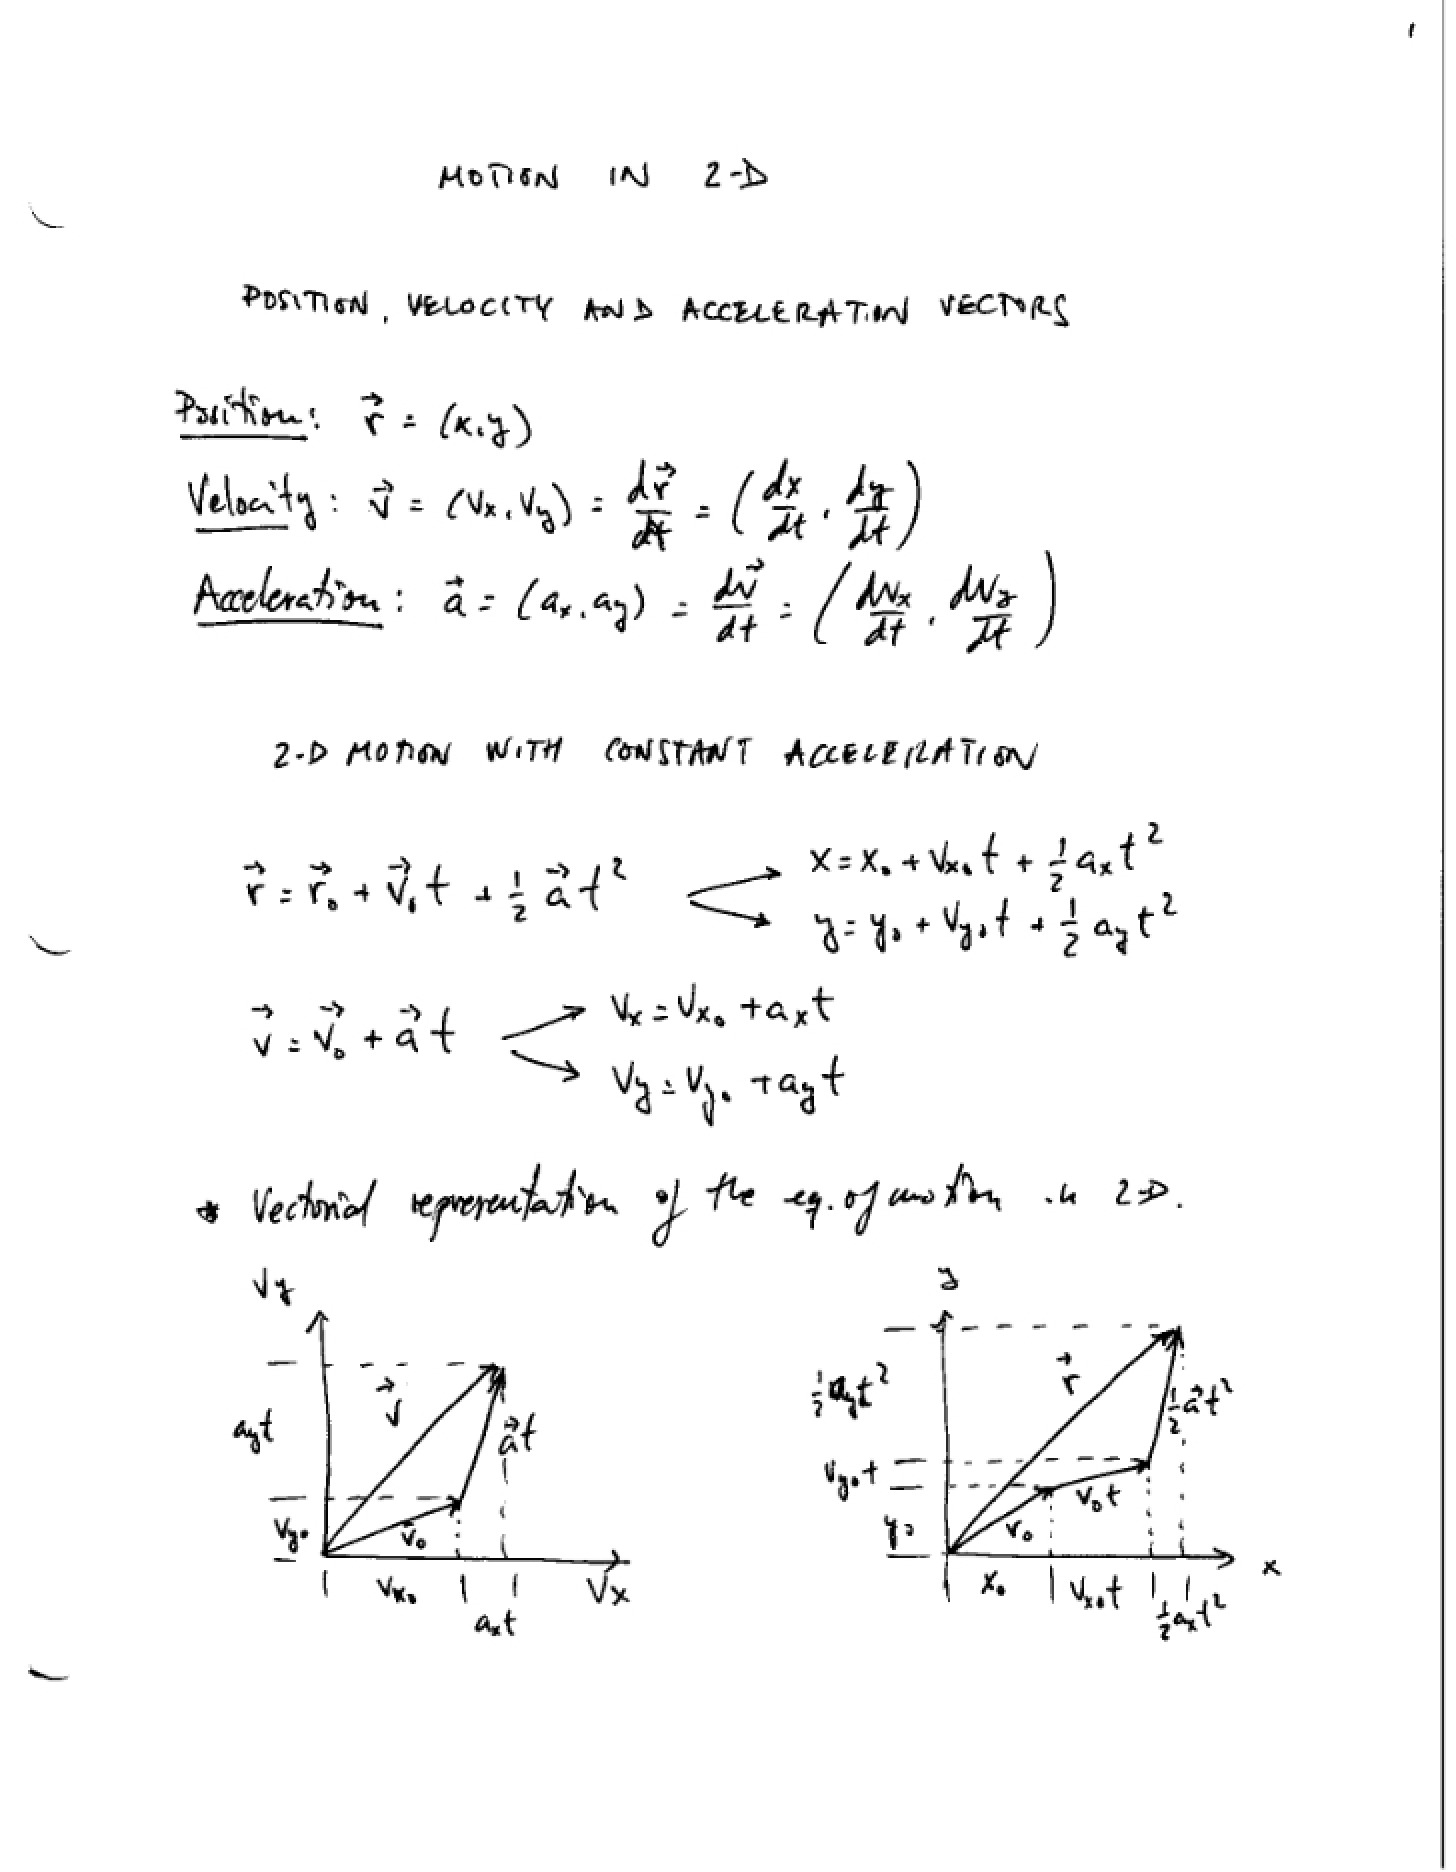 1
MOTION IN 2-D
POSITION, VELOCITY AND ACCELERATION VECTORS
Position: r⃗ = (x, y)
Velocity: v⃗ = (Vx, Vy) = dr⃗/dt = (dx/dt, dy/dt)
Acceleration: a⃗ = (ax, ay) = dv⃗/dt = (dvx/dt, dvy/dt)
2-D MOTION WITH CONSTANT ACCELERATION
r⃗ = r⃗₀ + v⃗₀t + ½ a⃗t²
x = x₀ + Vx₀t + ½ axt²
y = y₀ + Vy₀t + ½ ayt²
v⃗ = v⃗₀ + a⃗t
Vx = Vx₀ + axt
Vy = Vy₀ + ayt
* Vectorial representation of the eq. of motion in 2-D.
Vy
ayt
Vy₀
v⃗
a⃗t
v₀
Vx₀
axt
Vx
y
½ayt²
Vy₀t
y₀
r⃗
½a⃗t²
v₀t
r₀
x₀
Vx₀t
½axt²
x